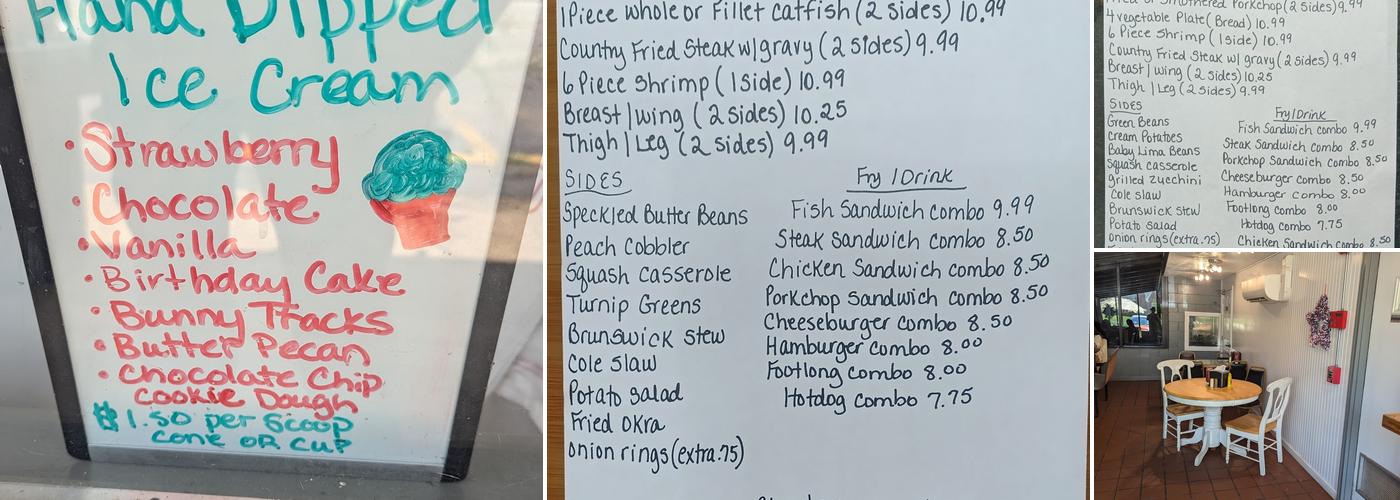 Hand Dipped
Ice Cream
• Strawberry
• Chocolate
• Vanilla
• Birthday Cake
• Bunny Tracks
• Butter Pecan
• Chocolate Chip
Cookie Dough
$1.50 per Scoop
Cone OR Cup
1 Piece whole or Fillet Catfish (2 sides) 10.99
Country Fried Steak w/gravy (2 sides) 9.99
6 Piece Shrimp (1 side) 10.99
Breast | wing (2 sides) 10.25
Thigh | Leg (2 sides) 9.99
SIDES
Speckled Butter Beans
Peach Cobbler
Squash Casserole
Turnip Greens
Brunswick Stew
Cole Slaw
Potato Salad
Fried Okra
onion rings (extra .75)
Fry / Drink
Fish Sandwich Combo 9.99
Steak Sandwich Combo 8.50
Chicken Sandwich Combo 8.50
Porkchop Sandwich Combo 8.50
Cheeseburger Combo 8.50
Hamburger Combo 8.00
Footlong Combo 8.00
Hotdog Combo 7.75
or Smothered Porkchop (2 sides) 9.99
4 vegetable Plate (Bread) 10.99
6 Piece Shrimp (1 side) 10.99
Country Fried Steak w/ gravy (2 sides) 9.99
Breast | wing (2 sides) 10.25
Thigh | Leg (2 sides) 9.99
SIDES
Green Beans
Cream Potatoes
Baby Lima Beans
Squash Casserole
grilled Zucchini
Cole slaw
Brunswick Stew
Potato Salad
onion rings (extra .75)
Fry / Drink
Fish Sandwich Combo 9.99
Steak Sandwich Combo 8.50
Porkchop Sandwich Combo 8.50
Cheeseburger Combo 8.50
Hamburger Combo 8.00
Footlong Combo 8.00
Hotdog Combo 7.75
Chicken Sandwich Combo 8.50